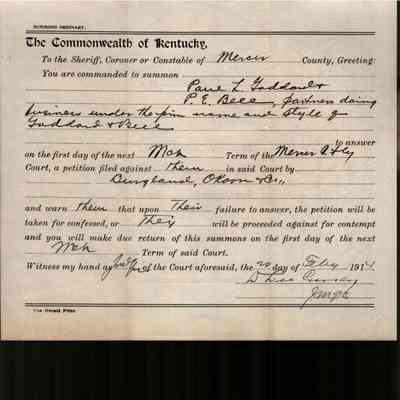 SUMMONS ORDINARY.
The Commonwealth of Kentucky,
To the Sheriff, Coroner or Constable of Mercer County, Greeting:
You are commanded to summon
Paul L. Goddard &
P. E. Bell, partners doing
business under the firm name and style of
Goddard & Bell
to answer
on the first day of the next Mch Term of the Mercer
Court, a petition filed against them in said Court by
and warn them that upon Their failure to answer, the petition will be
taken for confessed, or They will be proceeded against for contempt
and you will make due return of this summons on the first day of the next
Mch Term of said Court.
Witness my hand as of the Court aforesaid, the 20 day of Feby 1914
The Herald Print